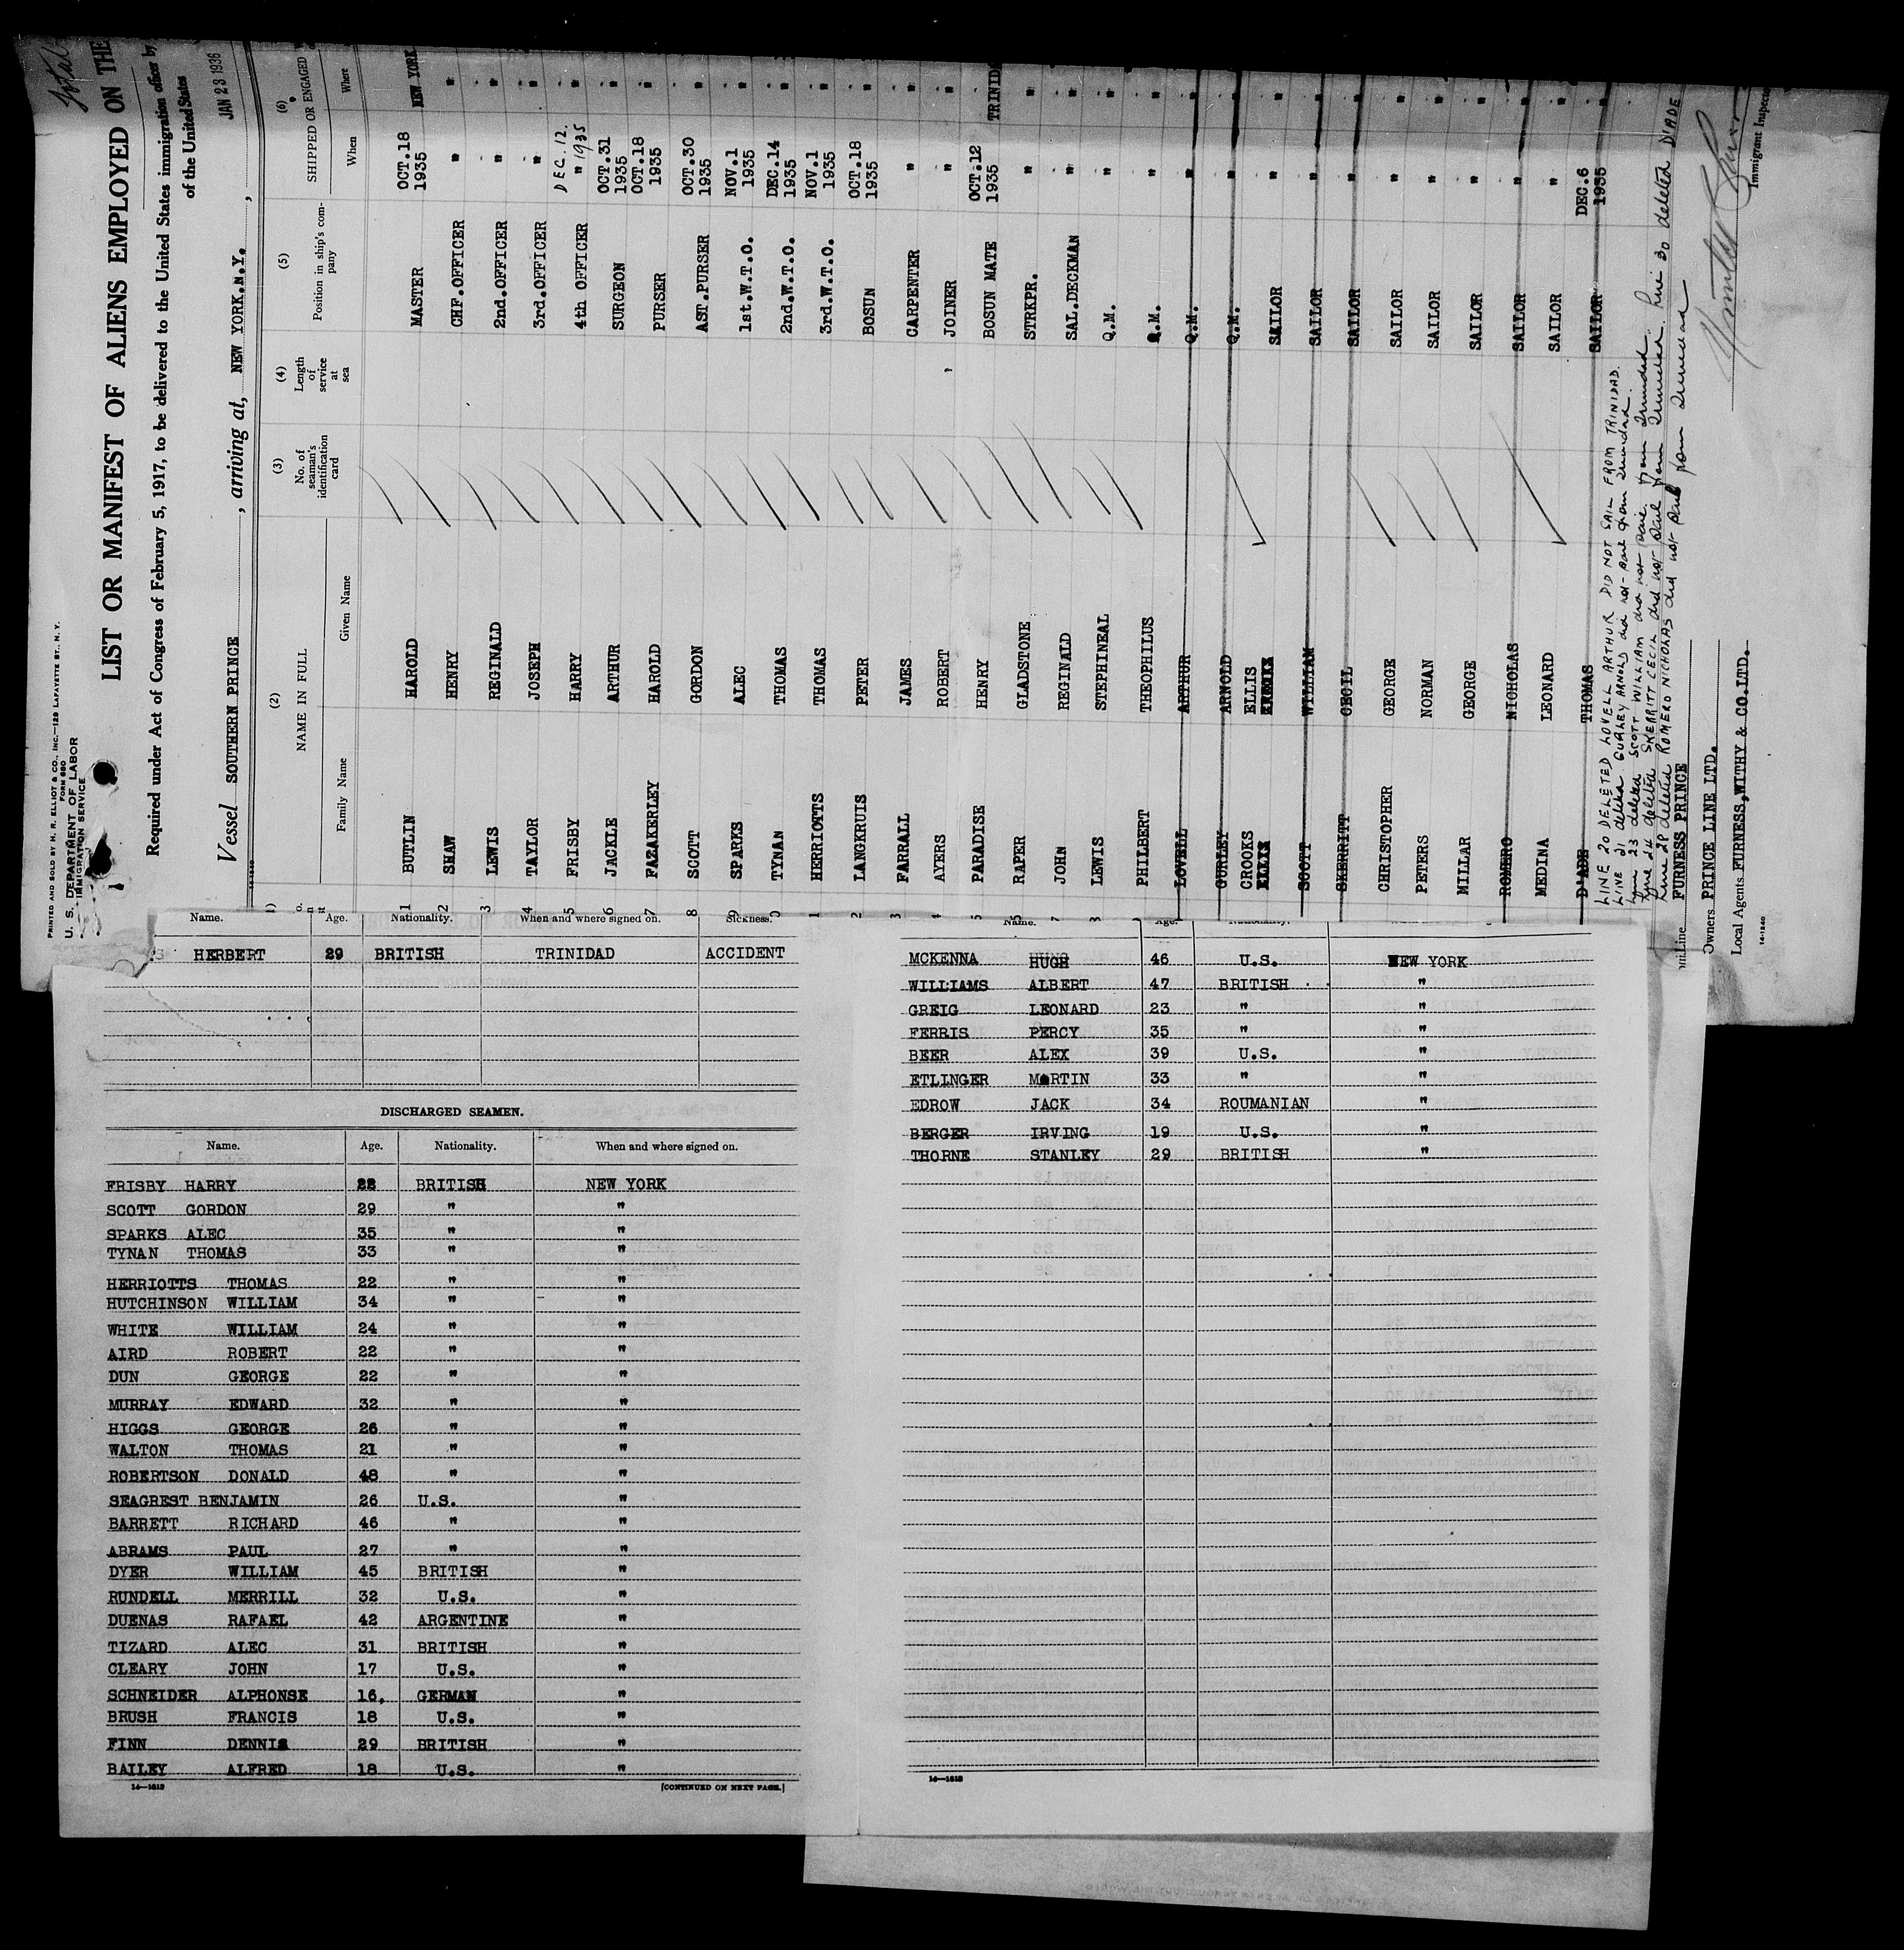 PRINTED AND SOLD BY H. R. ELLIOT & CO., INC.—129 LAFAYETTE ST., N. Y.
FORM 680
U. S. DEPARTMENT OF LABOR
IMMIGRATION SERVICE
LIST OR MANIFEST OF ALIENS EMPLOYED ON THE
Required under Act of Congress of February 5, 1917, to be delivered to the United States immigration officer by
of the United States
Vessel SOUTHERN PRINCE, arriving at, NEW YORK.N.Y., JAN 23 1936
(2) (3) (4) (5) (6)
NAME IN FULL No. of seaman's identification card Length of service at sea Position in ship's company SHIPPED OR ENGAGED
Family Name Given Name When Where
1 BUTLIN HAROLD MASTER OCT.18 1935 NEW YORK
2 SHAW HENRY CHF.OFFICER " "
3 LEWIS REGINALD 2nd.OFFICER " "
4 TAYLOR JOSEPH 3rd.OFFICER " "
5 FRISBY HARRY 4th OFFICER DEC.12. " 1935 "
6 JACKLE ARTHUR SURGEON OCT.31 1935 "
7 FAZAKERLEY HAROLD PURSER OCT.18 1935 "
8 SCOTT GORDON AST.PURSER OCT.30 1935 "
9 SPARKS ALEC 1st.W.T.O. NOV.1 1935 "
0 TYNAN THOMAS 2nd.W.T.O. DEC.14 1935 "
1 HERRIOTTS THOMAS 3rd.W.T.O. NOV.1 1935 "
2 LANGKRUIS PETER BOSUN OCT.18 1935 "
3 FARRALL JAMES CARPENTER " "
4 AYERS ROBERT JOINER " "
5 PARADISE HENRY BOSUN MATE OCT.12 1935 TRINIDA
RAPER GLADSTONE STRKPR. " "
7 JOHN REGINALD SAL.DECKMAN " "
8 LEWIS STEPHINEAL Q.M. " "
PHILBERT THEOPHILUS Q.M. " "
LOVELL ARTHUR Q.M. " "
GURLEY ARNOLD Q.M. " "
CROOKS ELLIS SAILOR " "
ELLIS
SCOTT WILLIAM SAILOR " "
SKERRITT CECIL SAILOR " "
CHRISTOPHER GEORGE SAILOR " "
PETERS NORMAN SAILOR " "
MILLAR GEORGE SAILOR " "
ROMERO NICHOLAS SAILOR " "
MEDINA LEONARD SAILOR " "
D'ADE THOMAS SAILOR DEC.6 1935 "
LINE 20 DELETED LOVELL ARTHUR DID NOT SAIL FROM TRINIDAD.
LINE 21 deleted GURLEY ARNOLD did not sail from Trinidad.
Line 23 deleted SCOTT WILLIAM did not sail from Trinidad.
Line 24 deleted SKERRITT CECIL did not sail from Trinidad. Line 30 deleted D'ADE
Line 28 deleted ROMERO NICHOLAS did not sail from Trinidad
Line FURNESS PRINCE
Owners PRINCE LINE LTD.
Local Agents FURNESS,WITHY & CO.LTD.
Immigrant Inspec
14-1240
Name. Age. Nationality. When and where signed on. Sickness.
HERBERT 29 BRITISH TRINIDAD ACCIDENT
DISCHARGED SEAMEN.
Name. Age. Nationality. When and where signed on.
FRISBY HARRY 22 BRITISH NEW YORK
SCOTT GORDON 29 " "
SPARKS ALEC 35 " "
TYNAN THOMAS 33 " "
HERRIOTTS THOMAS 22 " "
HUTCHINSON WILLIAM 34 " "
WHITE WILLIAM 24 " "
AIRD ROBERT 22 " "
DUN GEORGE 22 " "
MURRAY EDWARD 32 " "
HIGGS GEORGE 26 " "
WALTON THOMAS 21 " "
ROBERTSON DONALD 48 " "
SEAGREST BENJAMIN 26 U.S. "
BARRETT RICHARD 46 " "
ABRAMS PAUL 27 " "
DYER WILLIAM 45 BRITISH "
RUNDELL MERRILL 32 U.S. "
DUENAS RAFAEL 42 ARGENTINE "
TIZARD ALEC 31 BRITISH "
CLEARY JOHN 17 U.S. "
SCHNEIDER ALPHONSE 16, GERMAN "
BRUSH FRANCIS 18 U.S. "
FINN DENNIS 29 BRITISH "
BAILEY ALFRED 18 U.S. "
14—1613 [CONTINUED ON NEXT PAGE.]
Name. Age. Nationality.
MCKENNA HUGH 46 U.S. NEW YORK
WILLIAMS ALBERT 47 BRITISH "
GREIG LEONARD 23 " "
FERRIS PERCY 35 " "
BEER ALEX 39 U.S. "
ETLINGER MARTIN 33 " "
EDROW JACK 34 ROUMANIAN "
BERGER IRVING 19 U.S. "
THORNE STANLEY 29 BRITISH "
14—1613